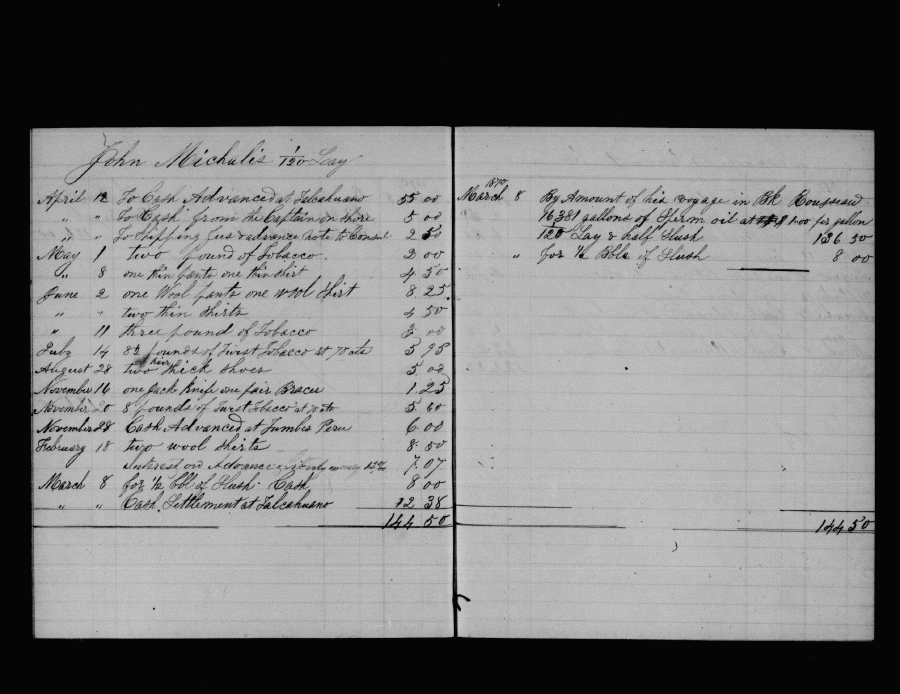 John Michalis 1/120 Lay
April 12 To Cash Advanced at Talcahuano 55 00
" " To Cash from the Captain on Shore 5 00
" " To Shipping fees & advance note to Consul 2 50
May 1 two pound of Tobacco. 2 00
" 8 one thin pants one thin shirt 4 50
June 2 one Wool pants one wool Shirt 8.25
" " two thin Shirts 4 50
" 11 three pound of Tobacco 3 00
July 14 8½ pounds of Twist Tobacco at 70 cts 5 95
August 28 two pair thick Shoes 5 00
November 16 one Jack Knife one pair Braces 1.25
November 20 8 pounds of Twist Tobacco at 70 cts 5.60
November 28 Cash Advanced at Tumbes Peru 6 00
February 18 two wool Shirts 8.50
Interest on Advance & liberty money 12% 7.07
March 8 for ½ bbl of Slush. Cash 8 00
" " Cash Settlement at Talcahuano 12 38
144 50
1870
March 8 By Amount of his voyage in Bk Rousseau
16381 gallons of Sperm oil at 1.00 per gallon
120 Lay & half Slush 136 50
" for ½ Bble of Slush 8 00
144 50